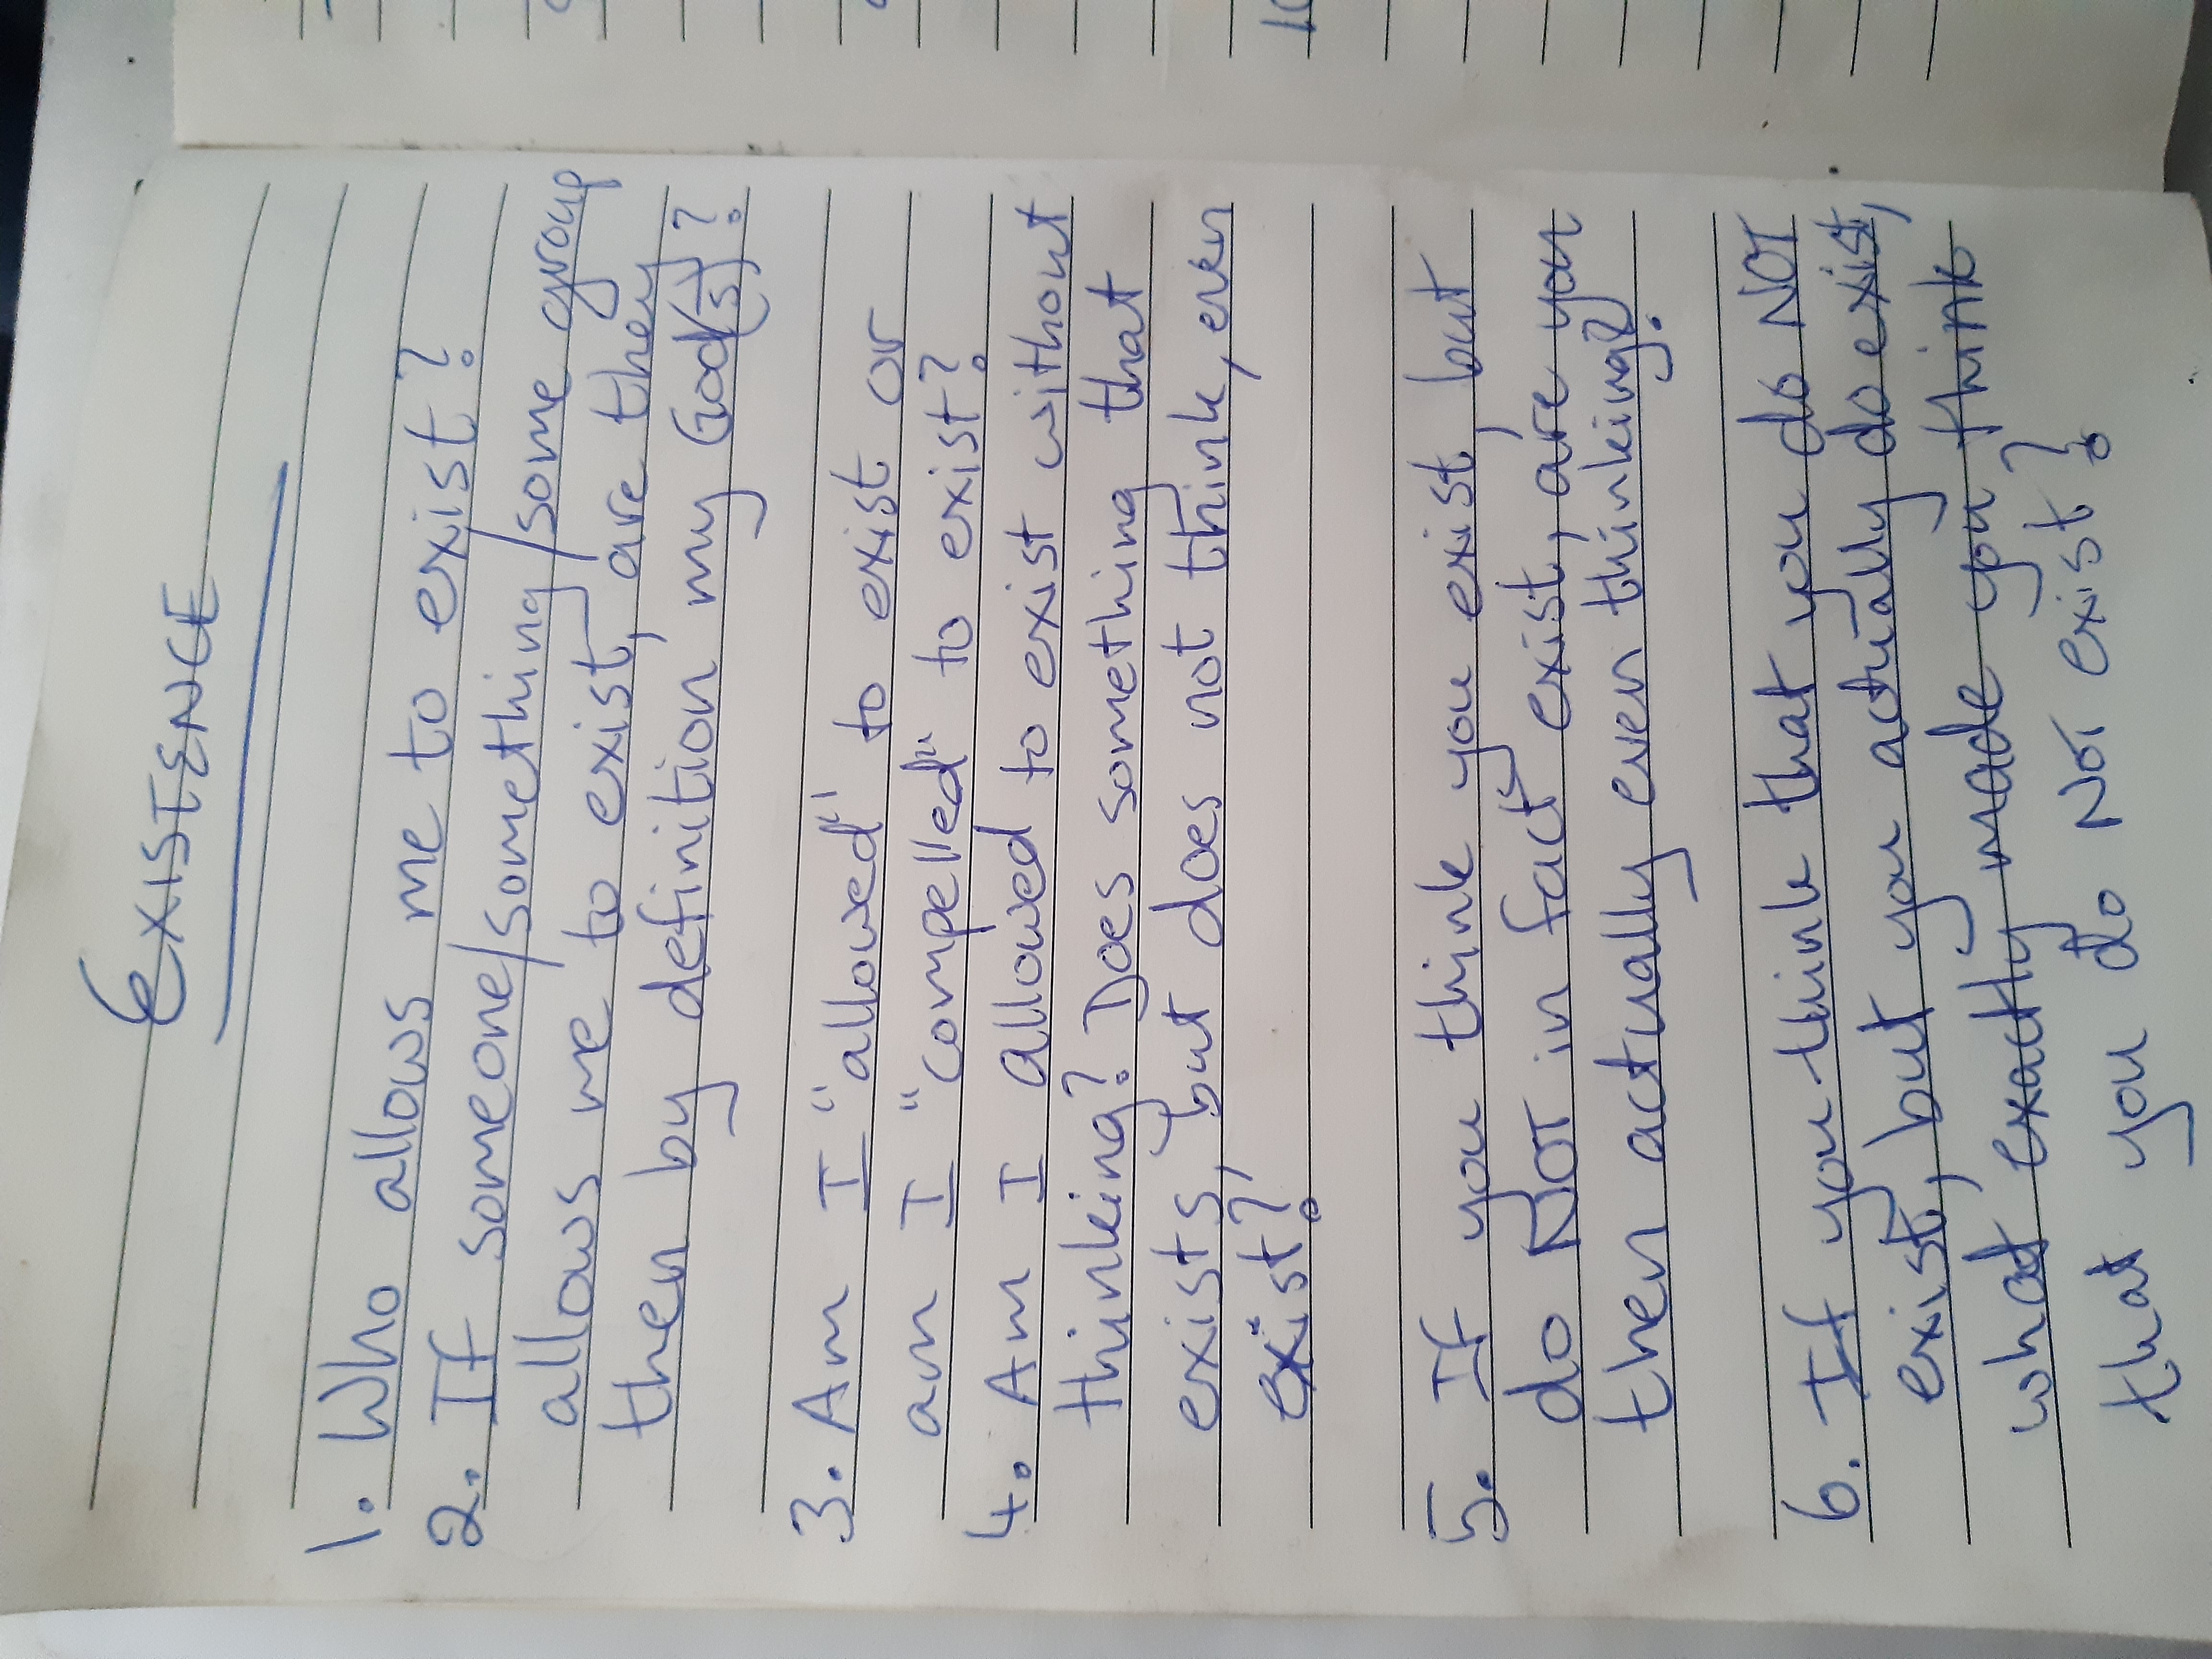 EXISTENCE
1. Who allows me to exist?
2. If someone/something/some group
allows me to exist, are they
then by definition my God(s)?
3. Am I "allowed" to exist or
am I "compelled" to exist?
4. Am I allowed to exist without
thinking? Does something that
exists, but does not think, even
exist?
5. If you think you exist, but
do NOT in fact exist, are you
then actually even thinking?
6. If you think that you do NOT
exist, but you actually do exist,
what exactly made you think
that you do NOT exist?
10